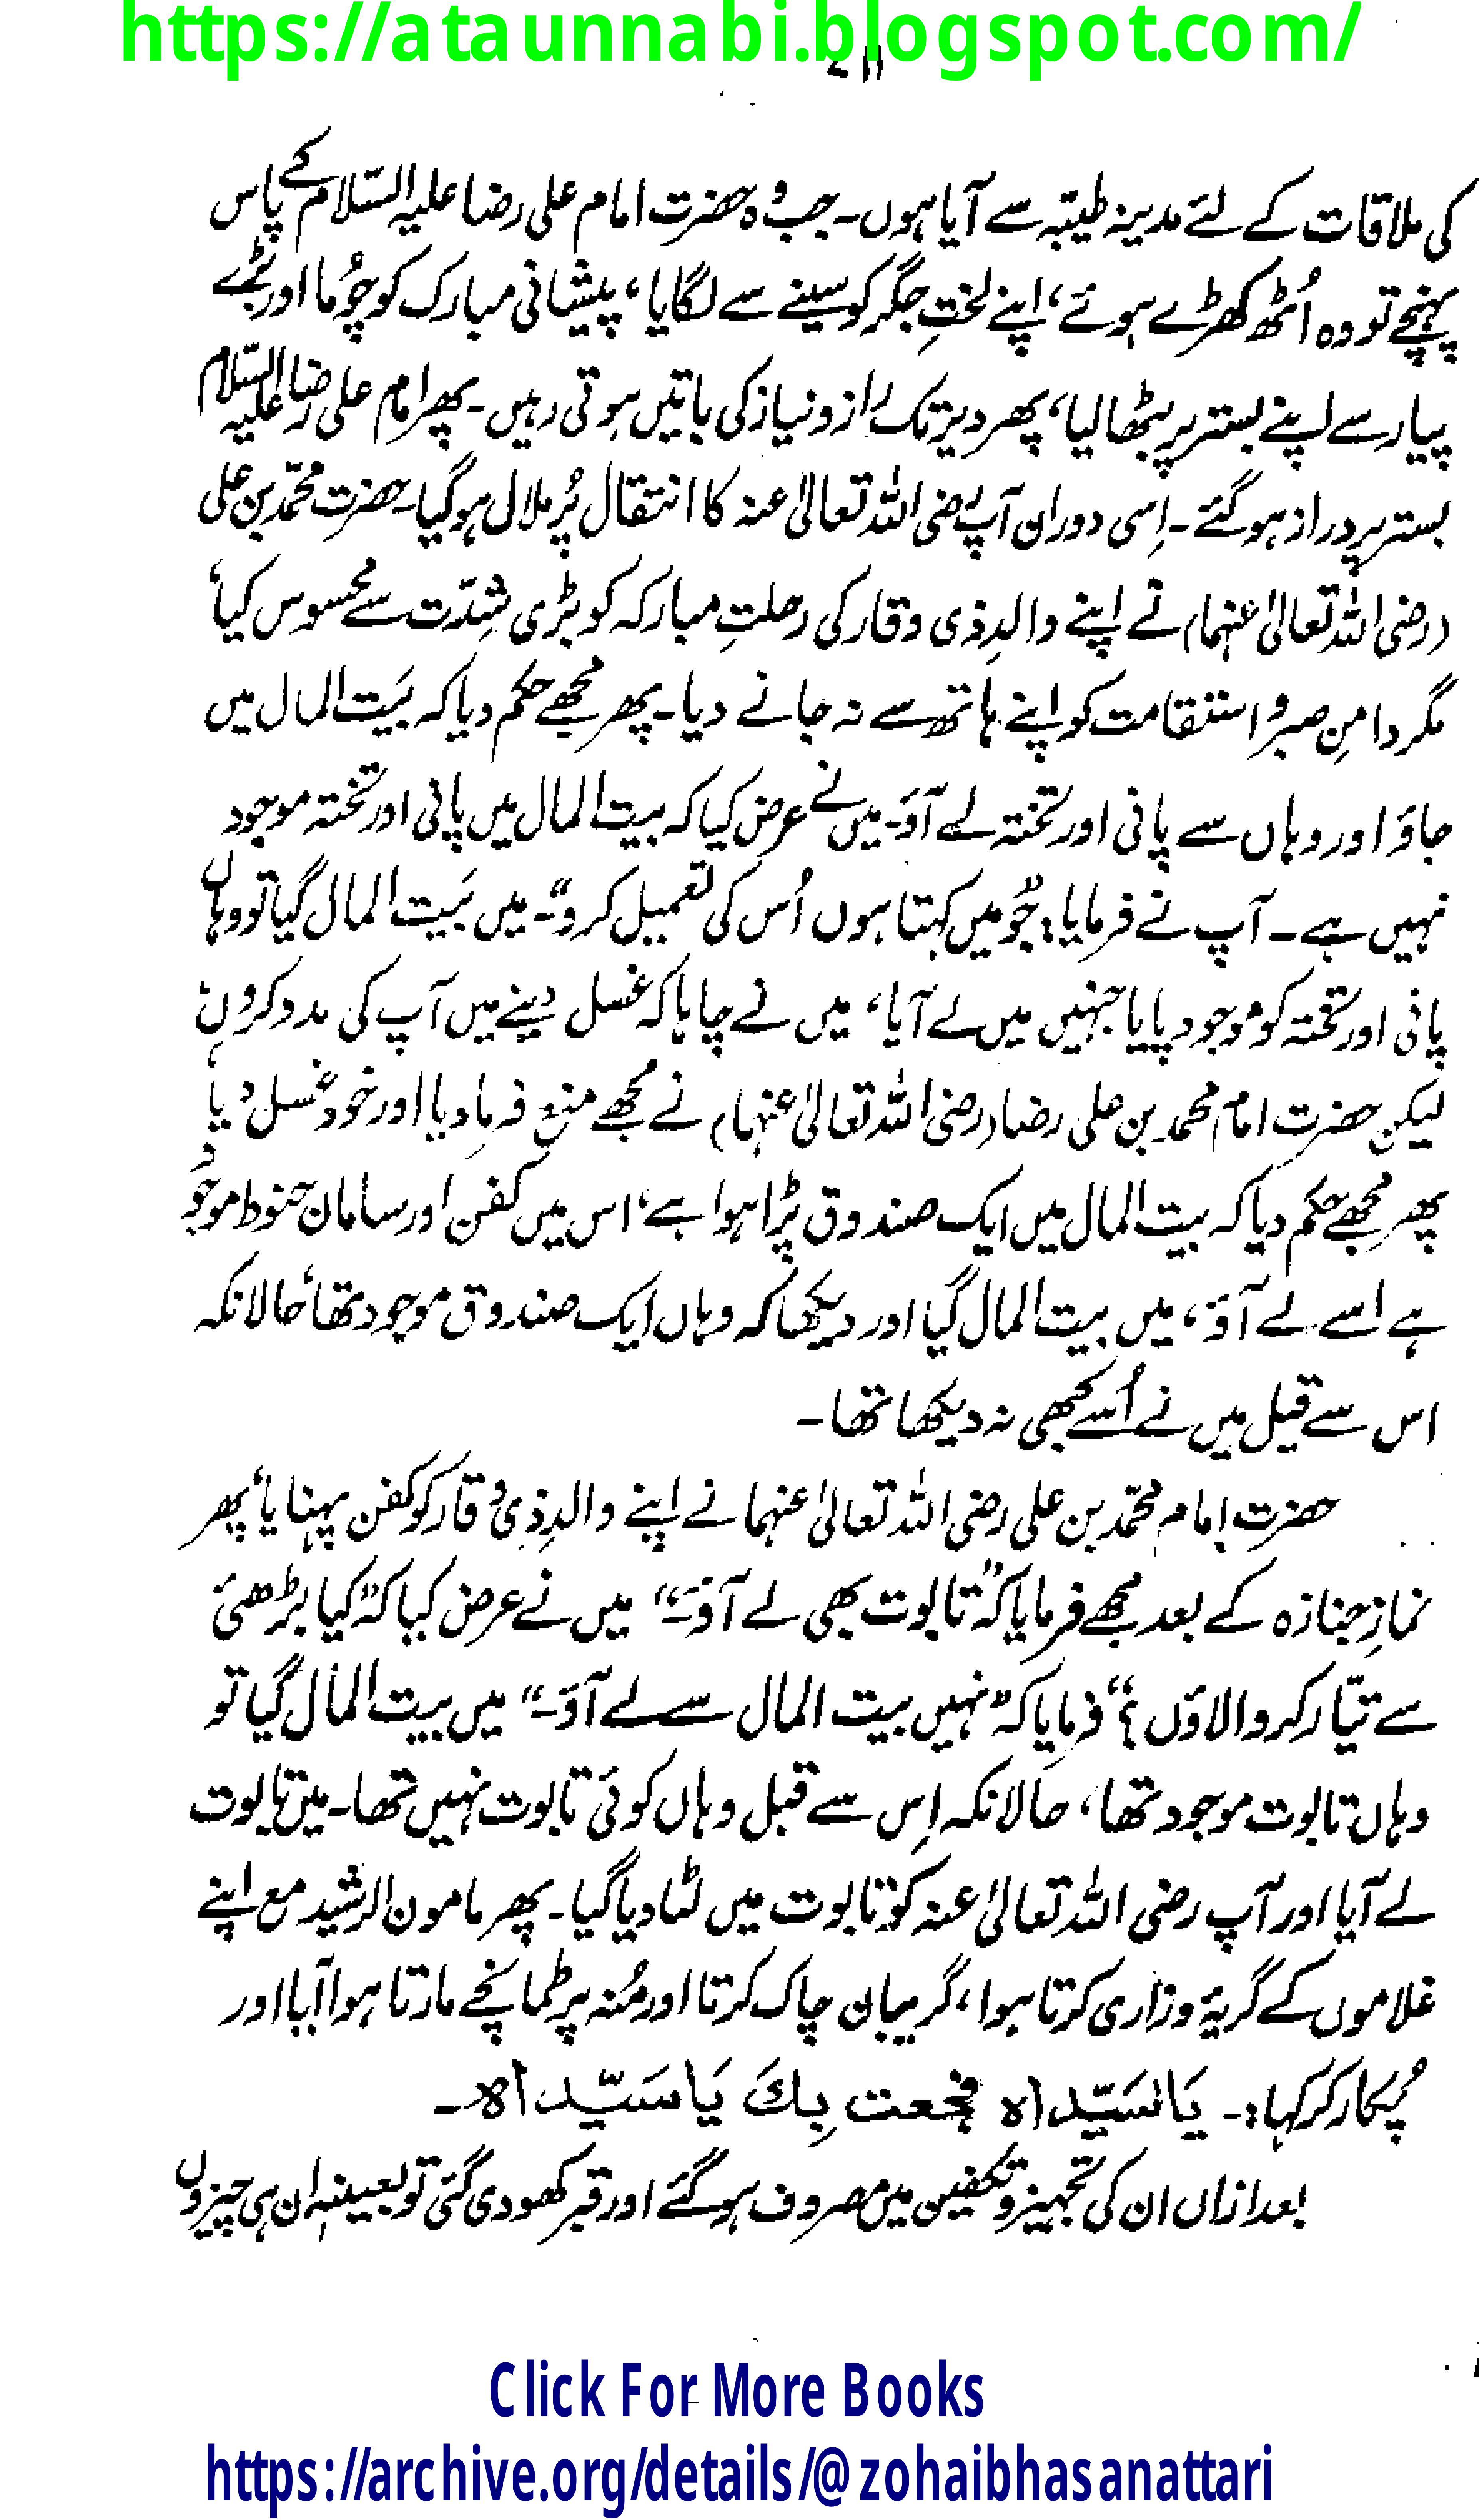 https://ataunnabi.blogspot.com/
کی ملاقات کے لئے مدینہ طیبّہ سے آیا ہوں۔ جب وہ حضرت امام علی رضا علیہ السّلام کے پاس
پہنچے تو وہ اُٹھ کھڑے ہوئے، اپنے لختِ جگر کو سینے سے لگایا، پیشانی مبارک کو چُوما اور بڑے
پیار سے اپنے بستر پر بٹھا لیا، پھر دیر تک راز و نیاز کی باتیں ہوتی رہیں۔ پھر امام علی رضا علیہ السّلام
بستر پر دراز ہو گئے۔ اِسی دوران آپ رضی اللہ تعالیٰ عنہ کا انتقال پُر ملال ہو گیا۔ حضرتِ محمّد بن علی
(رضی اللہ تعالیٰ عنہما) نے اپنے والدِ ذی وقار کی رحلتِ مبارکہ کو بڑی شِدّت سے محسوس کیا،
مگر دامنِ صبر و استقامت کو اپنے ہاتھ سے نہ جانے دیا۔ پھر مجھے حکم دیا کہ بَیت المال میں
جاؤ اور وہاں سے پانی اور تختہ لے آؤ۔ میں نے عرض کیا کہ بیت المال میں پانی اور تختہ موجود
نہیں ہے۔ آپ نے فرمایا: "جو میں کہتا ہوں اُس کی تعمیل کرو"۔ میں بَیت المال گیا تو وہاں
پانی اور تختہ کو موجود پایا جنہیں میں لے آیا، میں نے چاہا کہ غسل دینے میں آپ کی مدد کروں،
لیکن حضرت امام محمد بن علی رضا (رضی اللہ تعالیٰ عنہما) نے مجھے منع فرما دیا اور خود غسل دیا،
پھر مجھے حکم دیا کہ بیت المال میں ایک صندوق پڑا ہوا ہے، اس میں کفن اور سامان حنوط موجود
ہے اسے لے آؤ، میں بیت المال گیا اور دیکھا کہ وہاں ایک صندوق موجود تھا، حالانکہ
اس سے قبل میں نے اُسے کبھی نہ دیکھا تھا۔
حضرت امام محمّد بن علی رضی اللہ تعالیٰ عنہما نے اپنے والدِ ذی وقار کو کفن پہنایا، پھر
نمازِ جنازہ کے بعد مجھے فرمایا کہ "تابوت بھی لے آؤ۔" میں نے عرض کیا کہ "کیا بڑھئی
سے تیّار کروا لاؤں؟" فرمایا کہ "نہیں بیت المال سے لے آؤ۔" میں بیت المال گیا تو
وہاں تابوت موجود تھا، حالانکہ اِس سے قبل وہاں کوئی تابوت نہیں تھا۔ میں تابوت
لے آیا اور آپ رضی اللہ تعالیٰ عنہ کو تابوت میں لٹا دیا گیا۔ پھر مامون الرشید مع اپنے
غلاموں کے گریہٴ و زاری کرتا ہوا، گریبان چاک کرتا اور مُنہ پر طمانچے مارتا ہوا آیا اور
پُکار کر کہا:۔ یَا سَیّداہ فجعت بِكَ یَا سَیّداہ۔
بعد ازاں ان کی تجہیز و تکفین میں مصروف ہو گئے اور قبر کھودی گئی تو بعینہٖ ان ہی چیزوں
Click For More Books
https://archive.org/details/@zohaibhasanattari